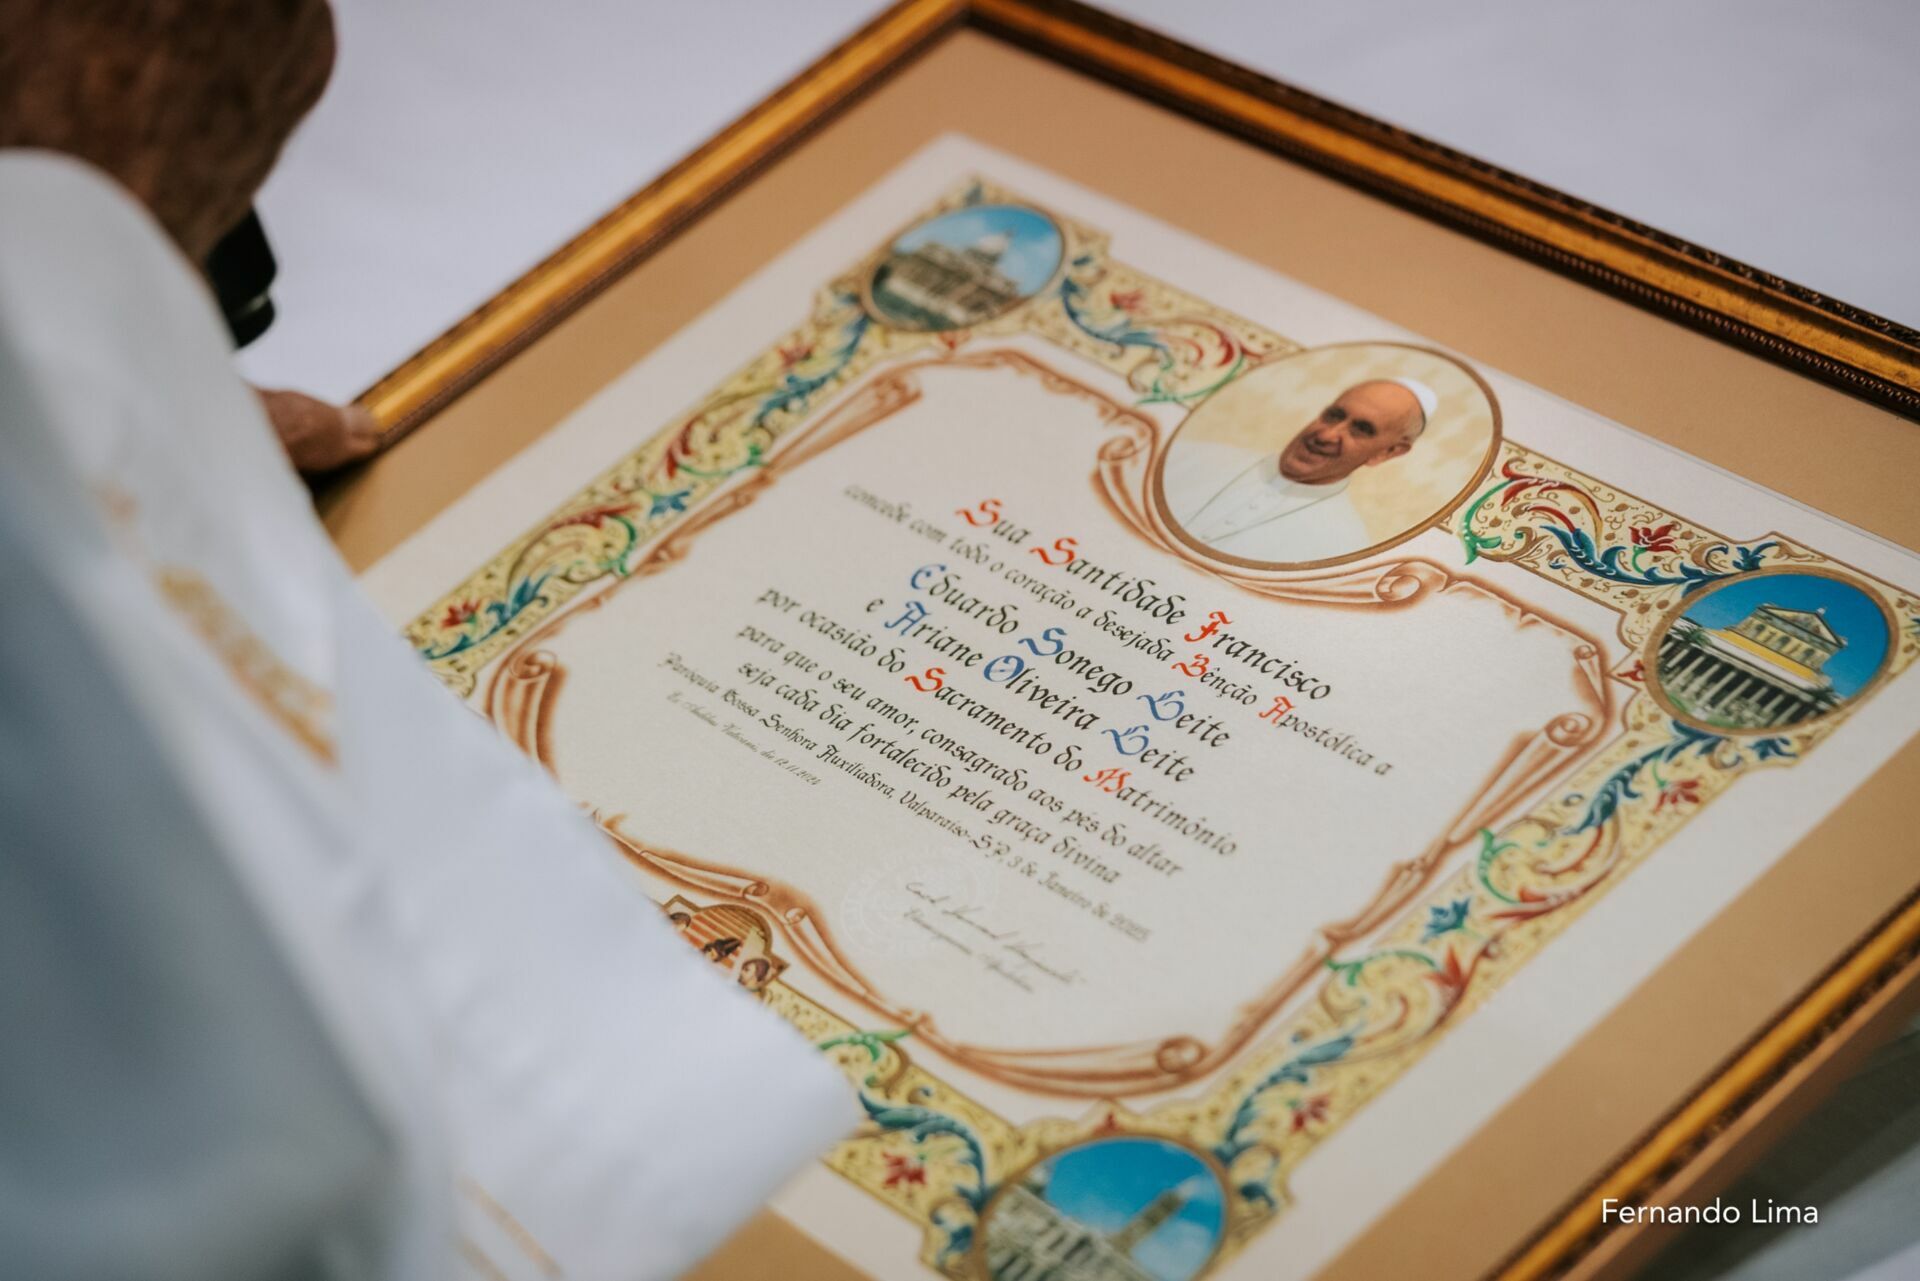 Sua Santidade Francisco
concede com todo o coração a desejada Bênção Apostólica a
Eduardo Sonego Leite
e Ariane Oliveira Leite
por ocasião do Sacramento do Matrimônio
para que o seu amor, consagrado aos pés do altar
seja cada dia fortalecido pela graça divina
Paróquia Nossa Senhora Auxiliadora, Valparaíso-SP, 3 de Janeiro de 2025
Ex Aedibus Vaticanis, die 12.11.2024
Fernando Lima